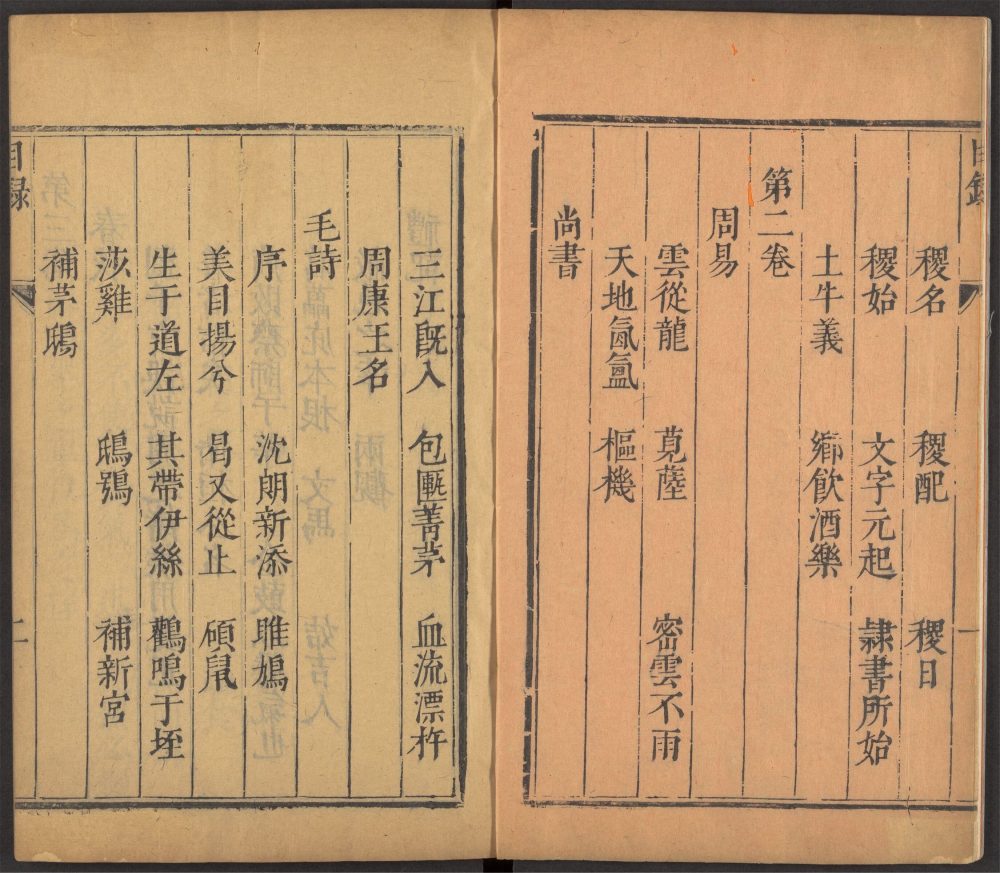 目錄 一
稷名 稷配 稷日
稷始 文字元起 隸書所始
土牛義 鄉飲酒樂
第二卷
周易
雲從龍 莧薩 密雲不雨
天地氤氳 樞機
尚書
三江旣入 包匭菁茅 血流漂杵
周康王名
毛詩
序 沈朗新添 雎鳩
美目揚兮 曷又從止 碩鼠
生于道左 其帶伊絲 鸛鳴于垤
莎雞 鴟鴞 補新宮
補茅鴟
目錄 二